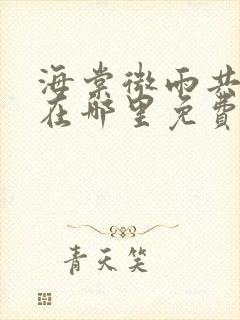 海棠微雨共
在哪里免費
青天笑